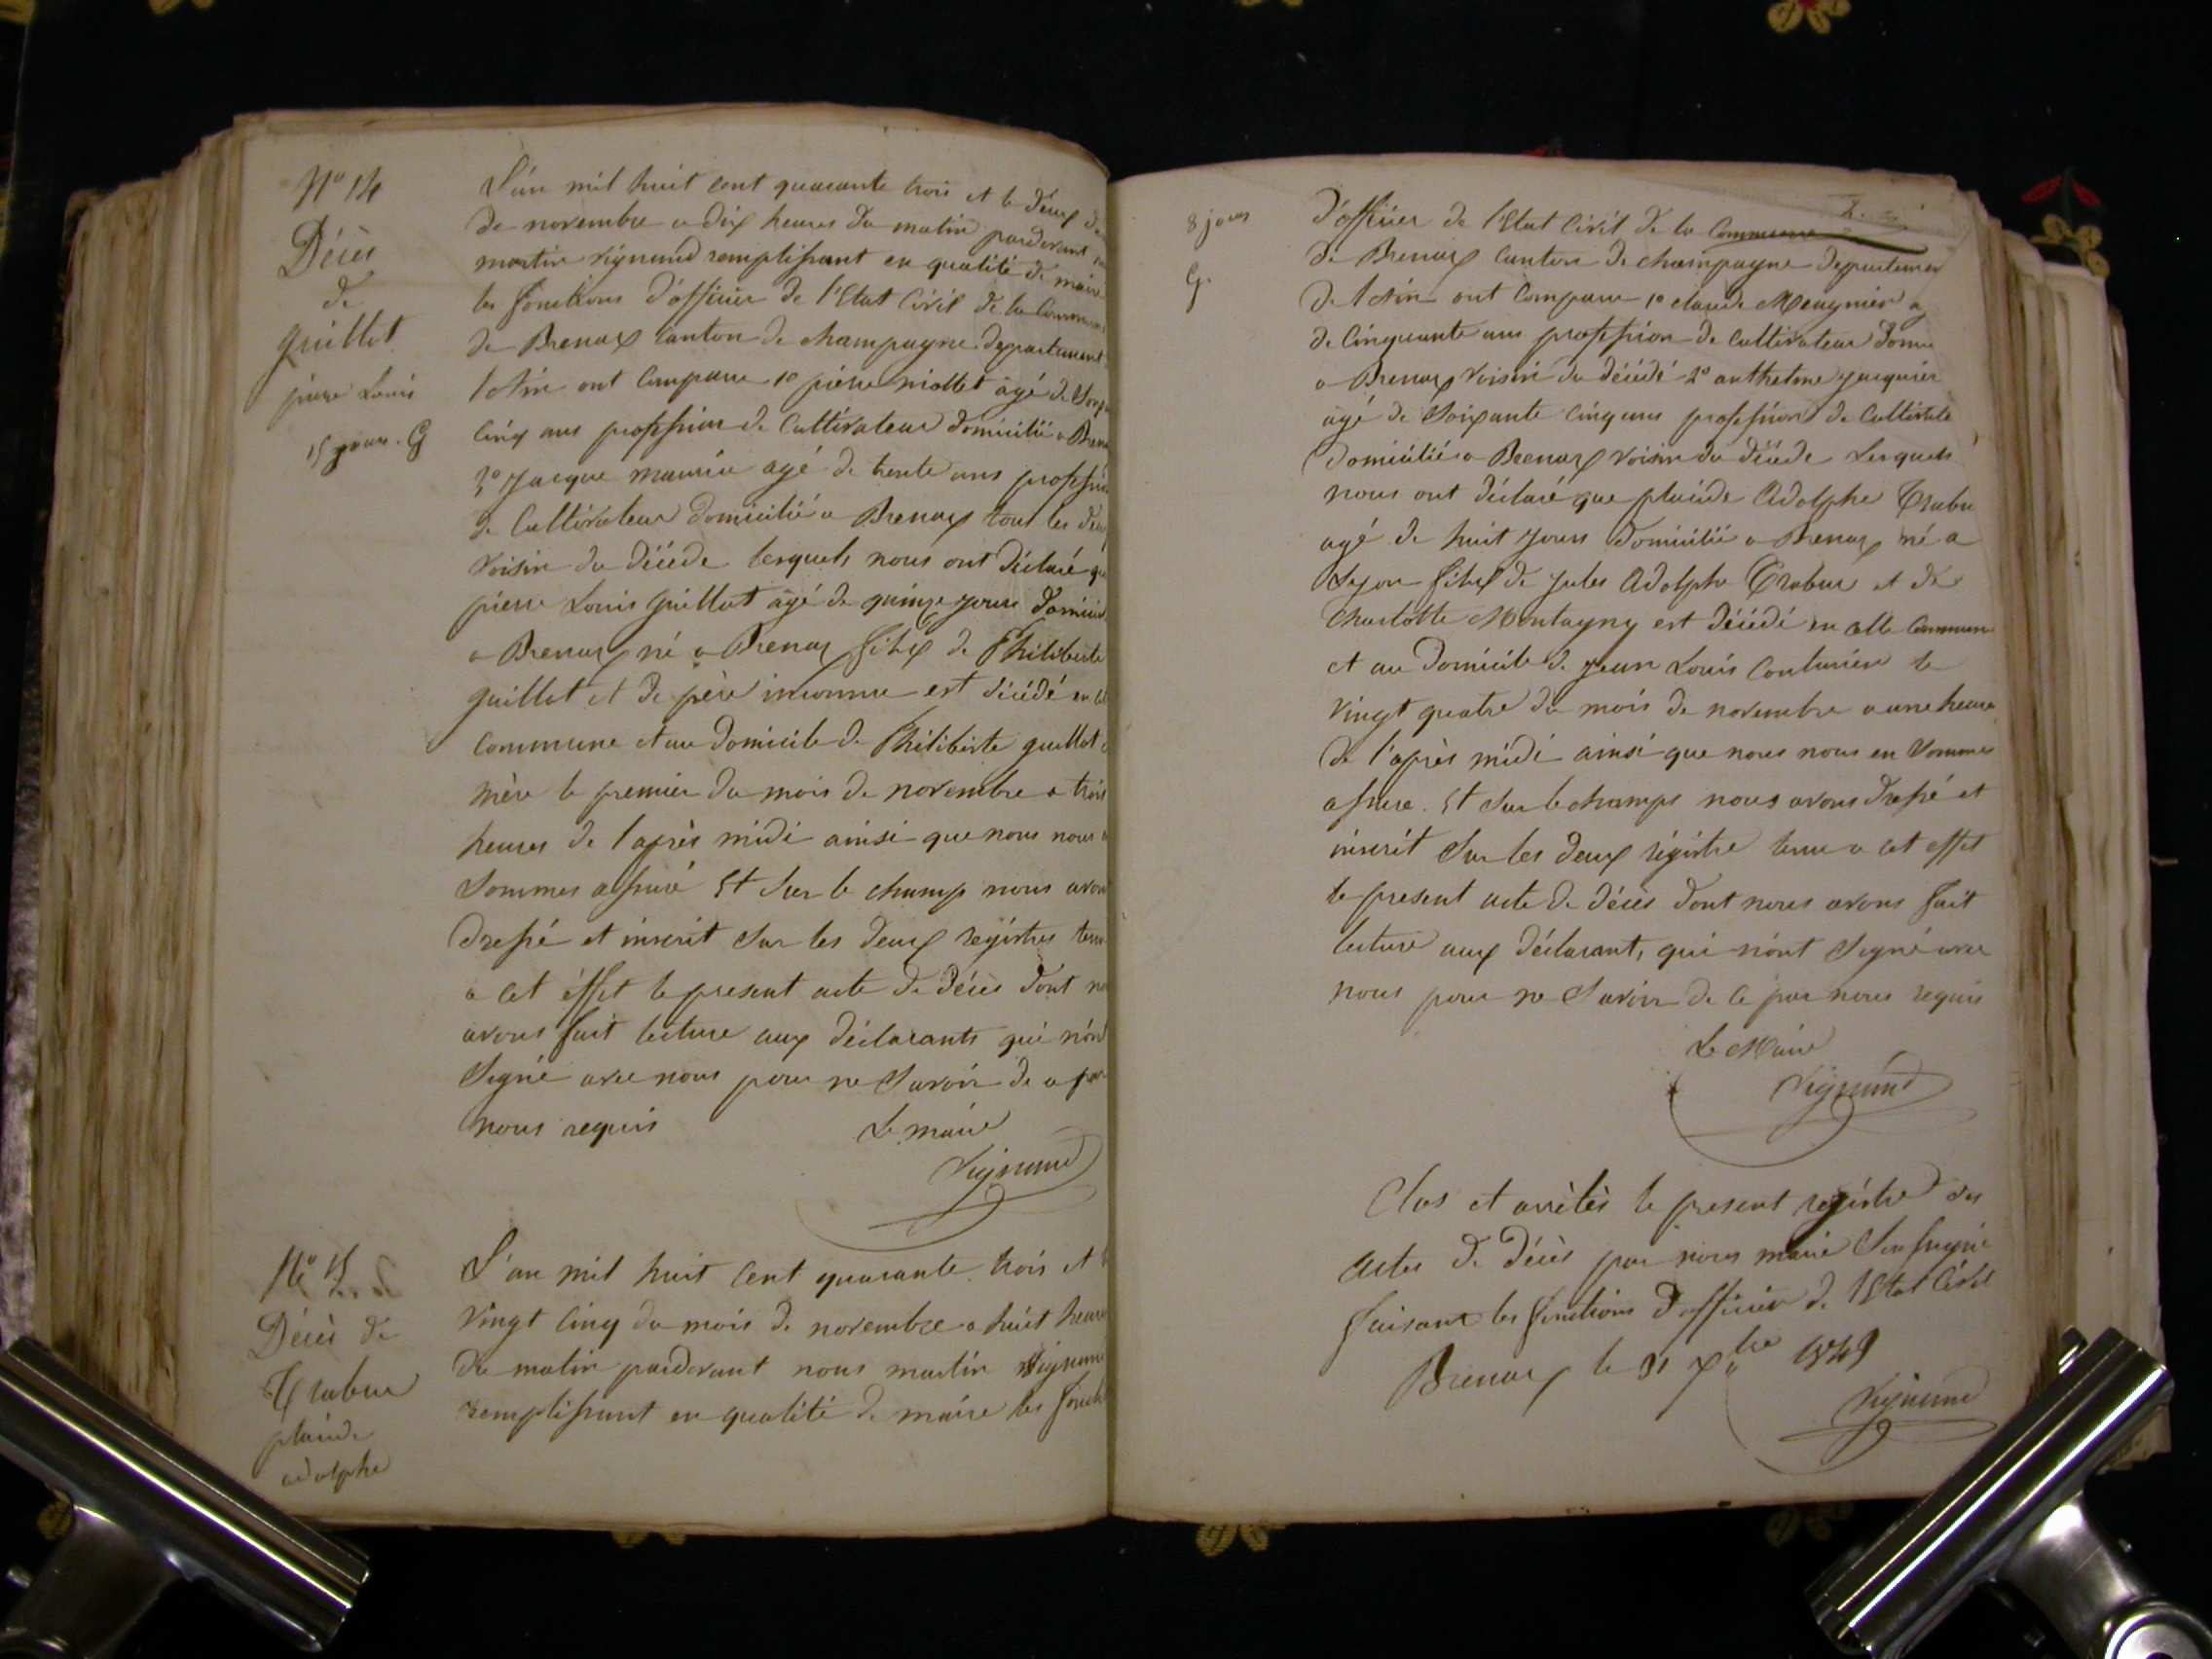 N° 14
Décès
de
guillot
pierre Louis
15 jours. G
L'an mil huit cent quarante trois et le deux
de novembre a dix heures du matin pardevant
martin vignand remplissant en qualité de maire
les fonctions d'officier de l'Etat Civil de la Commune
de Brenax Canton de champagne departement
l'Ain ont comparu 1° pierre miollet âgé de
Cinq ans profession de Cultivateur domicilié a
jacque maurin agé de trente ans profession
de Cultivateur domicilié a Brenax tout les deux
voisin du décéde lesquels nous ont déclaré
pierre Louis guillot âgé de quinze jours
a Brenax né a Brenax fils de Philiberte
guillot et de père inconnu est décédé en
commune et au domicile de Philiberte guillot
mère le premier du mois de novembre a trois
heures de l'après midi ainsi que nous nous
sommes assuré Et sur le champ nous avons
dressé et inscrit sur les deux régistres
a cet éffet le present acte de décès dont
avons fait lecture aux déclarants qui n'ont
signé avec nous pour ne savoir de
nous requis Le maire
Vignand
N° 15
Décès de
Trabu
placide
adolphe
L'an mil huit cent quarante trois et
vingt cinq du mois de novembre a huit heures
du matin pardevant nous martin vignand
remplissant en qualité de maire les
8 jours
G.
d'officier de l'Etat Civil de la Commune
de Brenax Canton de champagne departement
de l'Ain ont comparu 1° claude Meugnier
de Cinquante ans profession de Cultivateur
a Brenax voisin du décédé 2° jacquier
agé de Soixante Cinq ans profession de
domicilié a Brenax voisin du décéde Lesquels
nous ont déclaré que placide Adolphe Trabu
agé de huit jours domicilié a Brenax né a
Lyon fils de jules Adolphe Trabu et de
Charlotte Montagny est décédé en cette Commune
et au domicile de jean Louis Couturier le
vingt quatre du mois de novembre a une heure
de l'après midi ainsi que nous nous en Sommes
assuré. Et sur le champs nous avons dressé et
inscrit sur les deux régistre tenu a cet effet
le present acte de décès dont nous avons fait
lecture aux déclarants qui n'ont signé avec
nous pour ne savoir de ce par nous requis
Le Maire
Vignand
Clos et arrêtés le present régistre des
actes de décès par nous maire Soussigné
faisant les fonctions d'officier de l'Etat Civil
Brenax le 31
Vignand